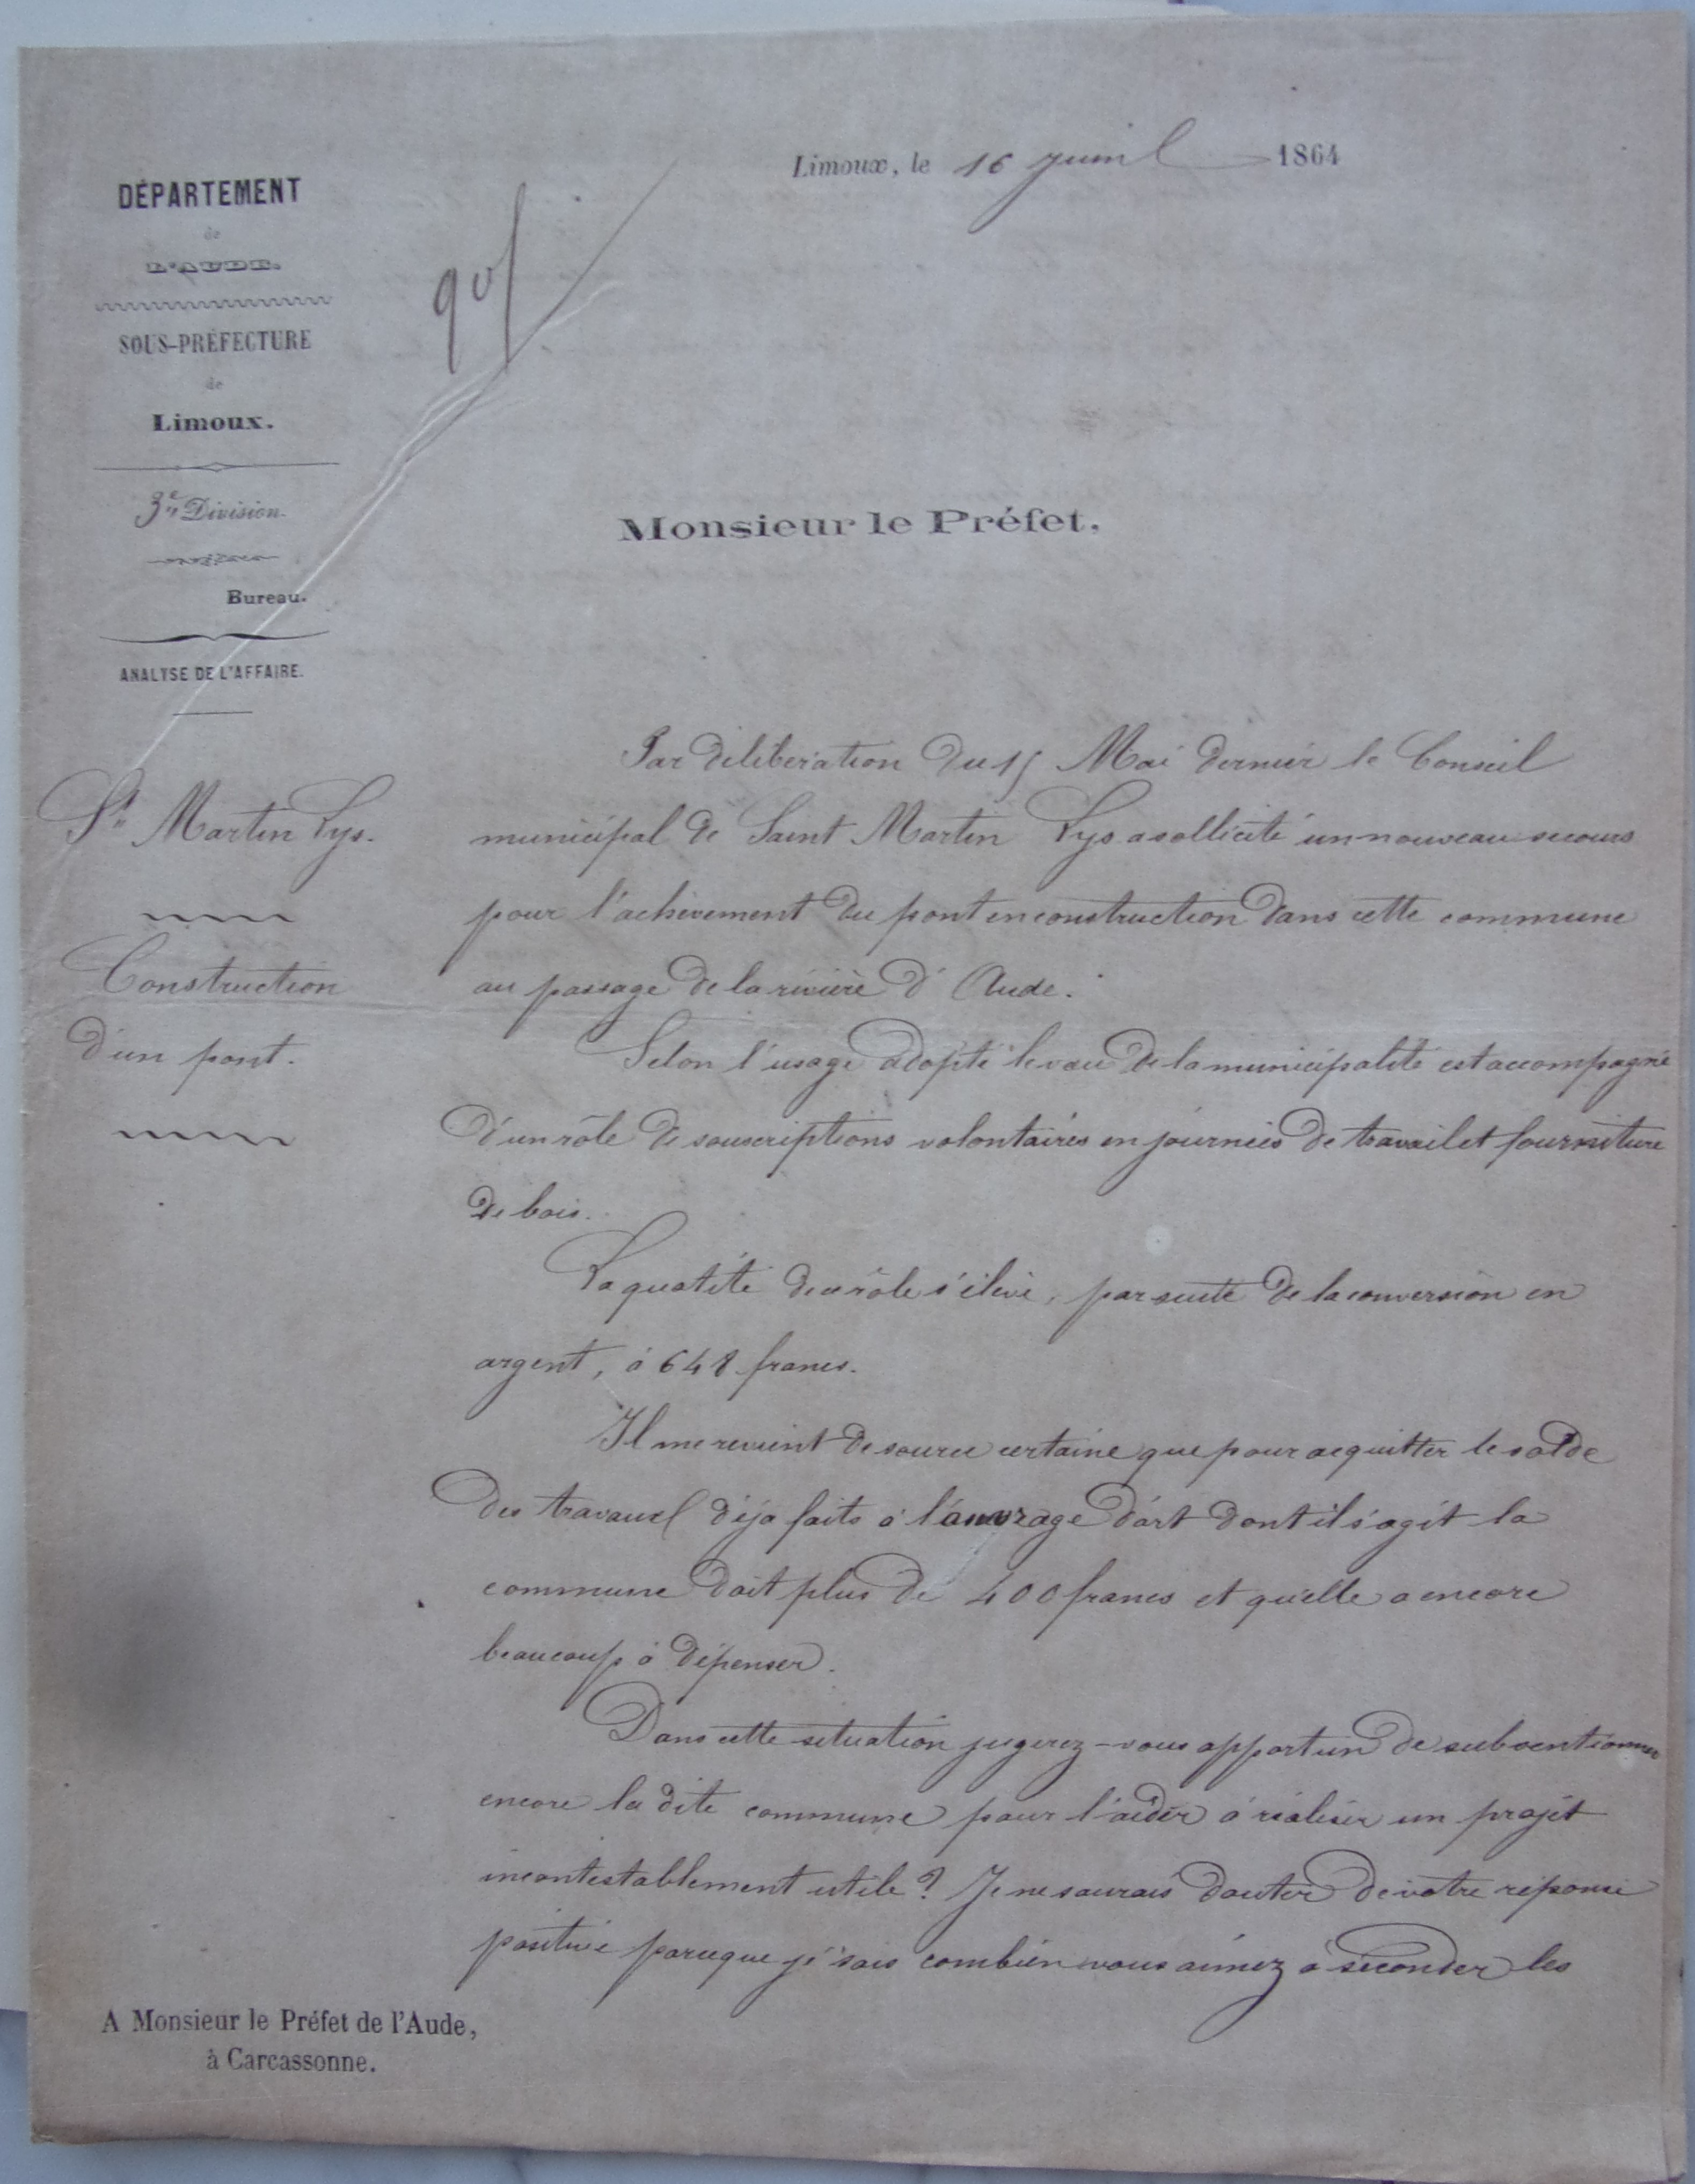 Limoux, le 16 juin 1864
DÉPARTEMENT
de
L'AUDE.
SOUS-PRÉFECTURE
de
Limoux.
3e Division
Bureau.
ANALYSE DE L'AFFAIRE.
St Martin Lys.
Construction
d'un pont.
Monsieur le Préfet,
Par délibération du 15 Mai dernier le Conseil
municipal de Saint Martin Lys a sollicité un nouveau secours
pour l'achèvement du pont en construction dans cette commune
au passage de la rivière d'Aude.
Selon l'usage adopté le vœu de la municipalité est accompagné
d'un rôle de souscriptions volontaires en journées de travail et fourniture
de bois.
La quotité de ce rôle s'élève, par suite de la conversion en
argent, à 648 francs.
Il me revient de source certaine que pour acquitter le solde
des travaux déjà faits à l'ouvrage d'art dont il s'agit la
commune doit plus de 400 francs et qu'elle a encore
beaucoup à dépenser.
Dans cette situation jugerez-vous opportun de subventionner
encore la dite commune pour l'aider à réaliser un projet
incontestablement utile ? Je ne saurais douter de votre réponse
positive parceque je sais combien vous aimez à seconder les
A Monsieur le Préfet de l'Aude,
à Carcassonne.